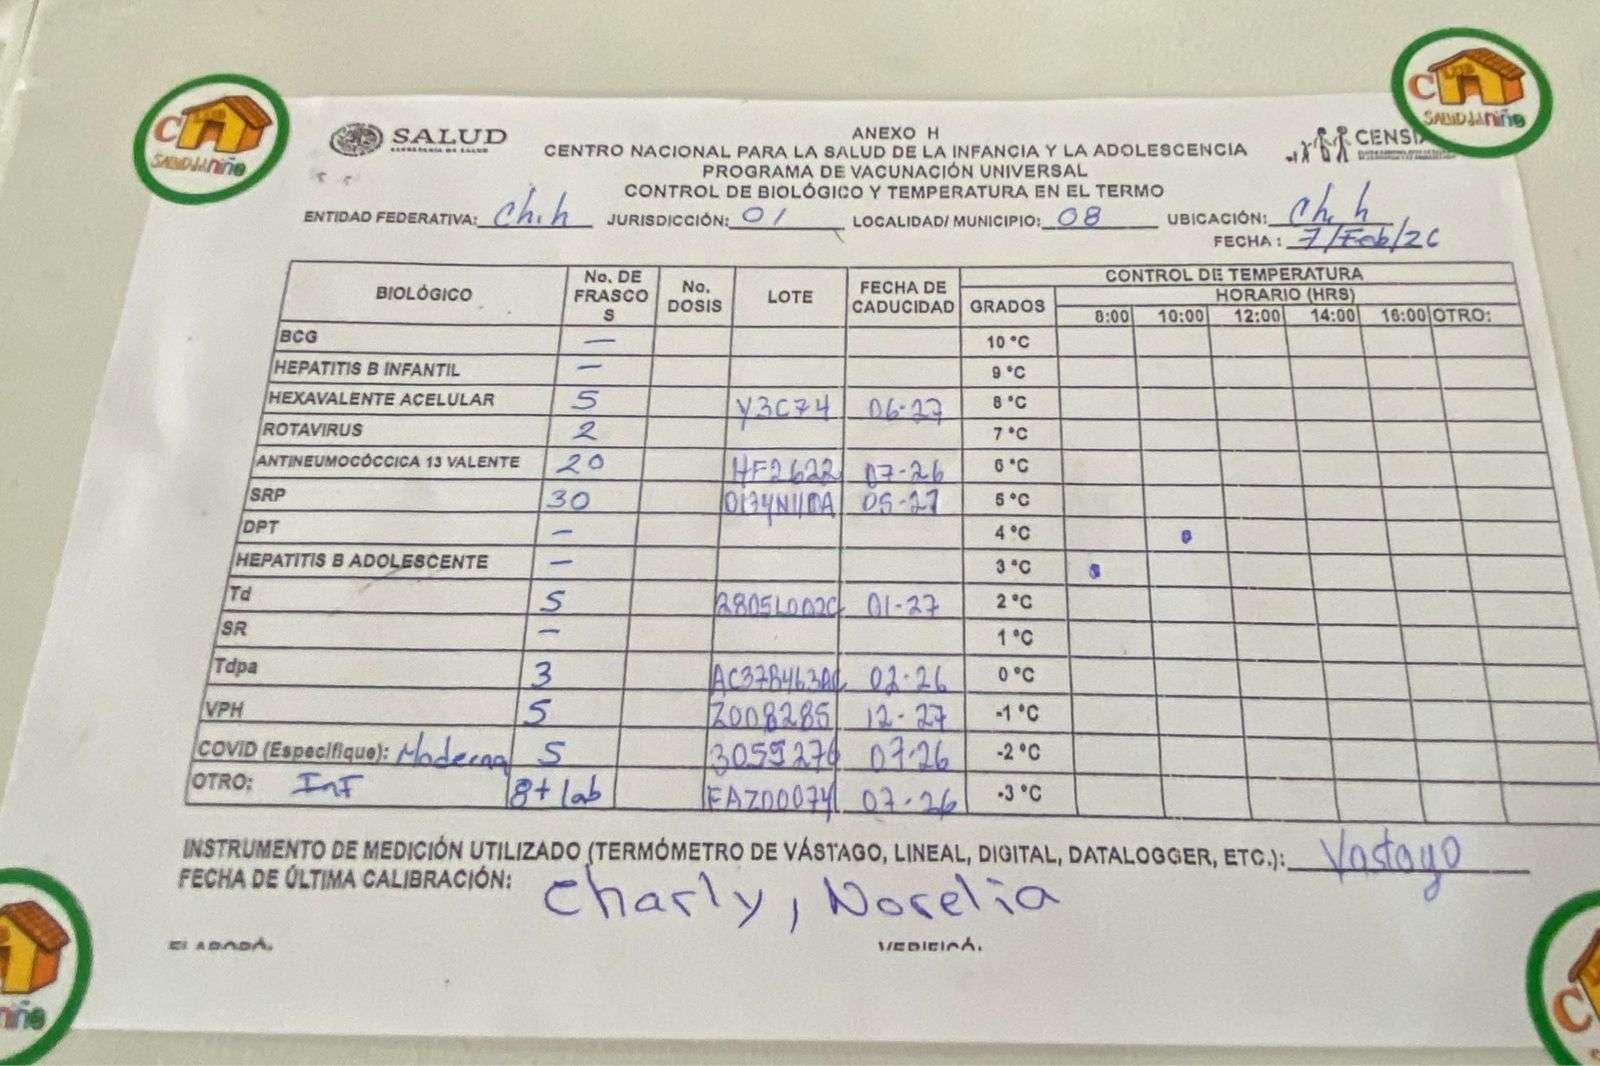 SALUD
SECRETARÍA DE SALUD
ANEXO H
CENTRO NACIONAL PARA LA SALUD DE LA INFANCIA Y LA ADOLESCENCIA
PROGRAMA DE VACUNACIÓN UNIVERSAL
CONTROL DE BIOLÓGICO Y TEMPERATURA EN EL TERMO
C SALUD del niño
C SALUD del niño
ENTIDAD FEDERATIVA: Chih JURISDICCIÓN: 01 LOCALIDAD/ MUNICIPIO: 08 UBICACIÓN: Chih
FECHA : 7/Feb/26
BIOLÓGICO No. DE FRASCOS No. DOSIS LOTE FECHA DE CADUCIDAD GRADOS CONTROL DE TEMPERATURA
HORARIO (HRS)
8:00 10:00 12:00 14:00 16:00 OTRO:
BCG — 10 °C
HEPATITIS B INFANTIL — 9 °C
HEXAVALENTE ACELULAR 5 Y3C74 06-27 8 °C
ROTAVIRUS 2 7 °C
ANTINEUMOCÓCCICA 13 VALENTE 20 HF2622 07-26 6 °C
SRP 30 05-27 5 °C
DPT — 4 °C
HEPATITIS B ADOLESCENTE — 3 °C
Td 5 01-27 2 °C
SR — 1 °C
Tdpa 3 02-26 0 °C
VPH 5 Z008285 12-27 -1 °C
COVID (Especifique): Moderna 5 3059276 07-26 -2 °C
OTRO: Inf 8+1ab 07-26 -3 °C
INSTRUMENTO DE MEDICIÓN UTILIZADO (TERMÓMETRO DE VÁSTAGO, LINEAL, DIGITAL, DATALOGGER, ETC.): Vastago
FECHA DE ÚLTIMA CALIBRACIÓN:
Charly, Norelia
niño
C